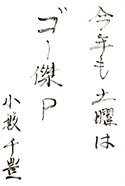 今年も土曜は
ゴー傑P
小数千豊